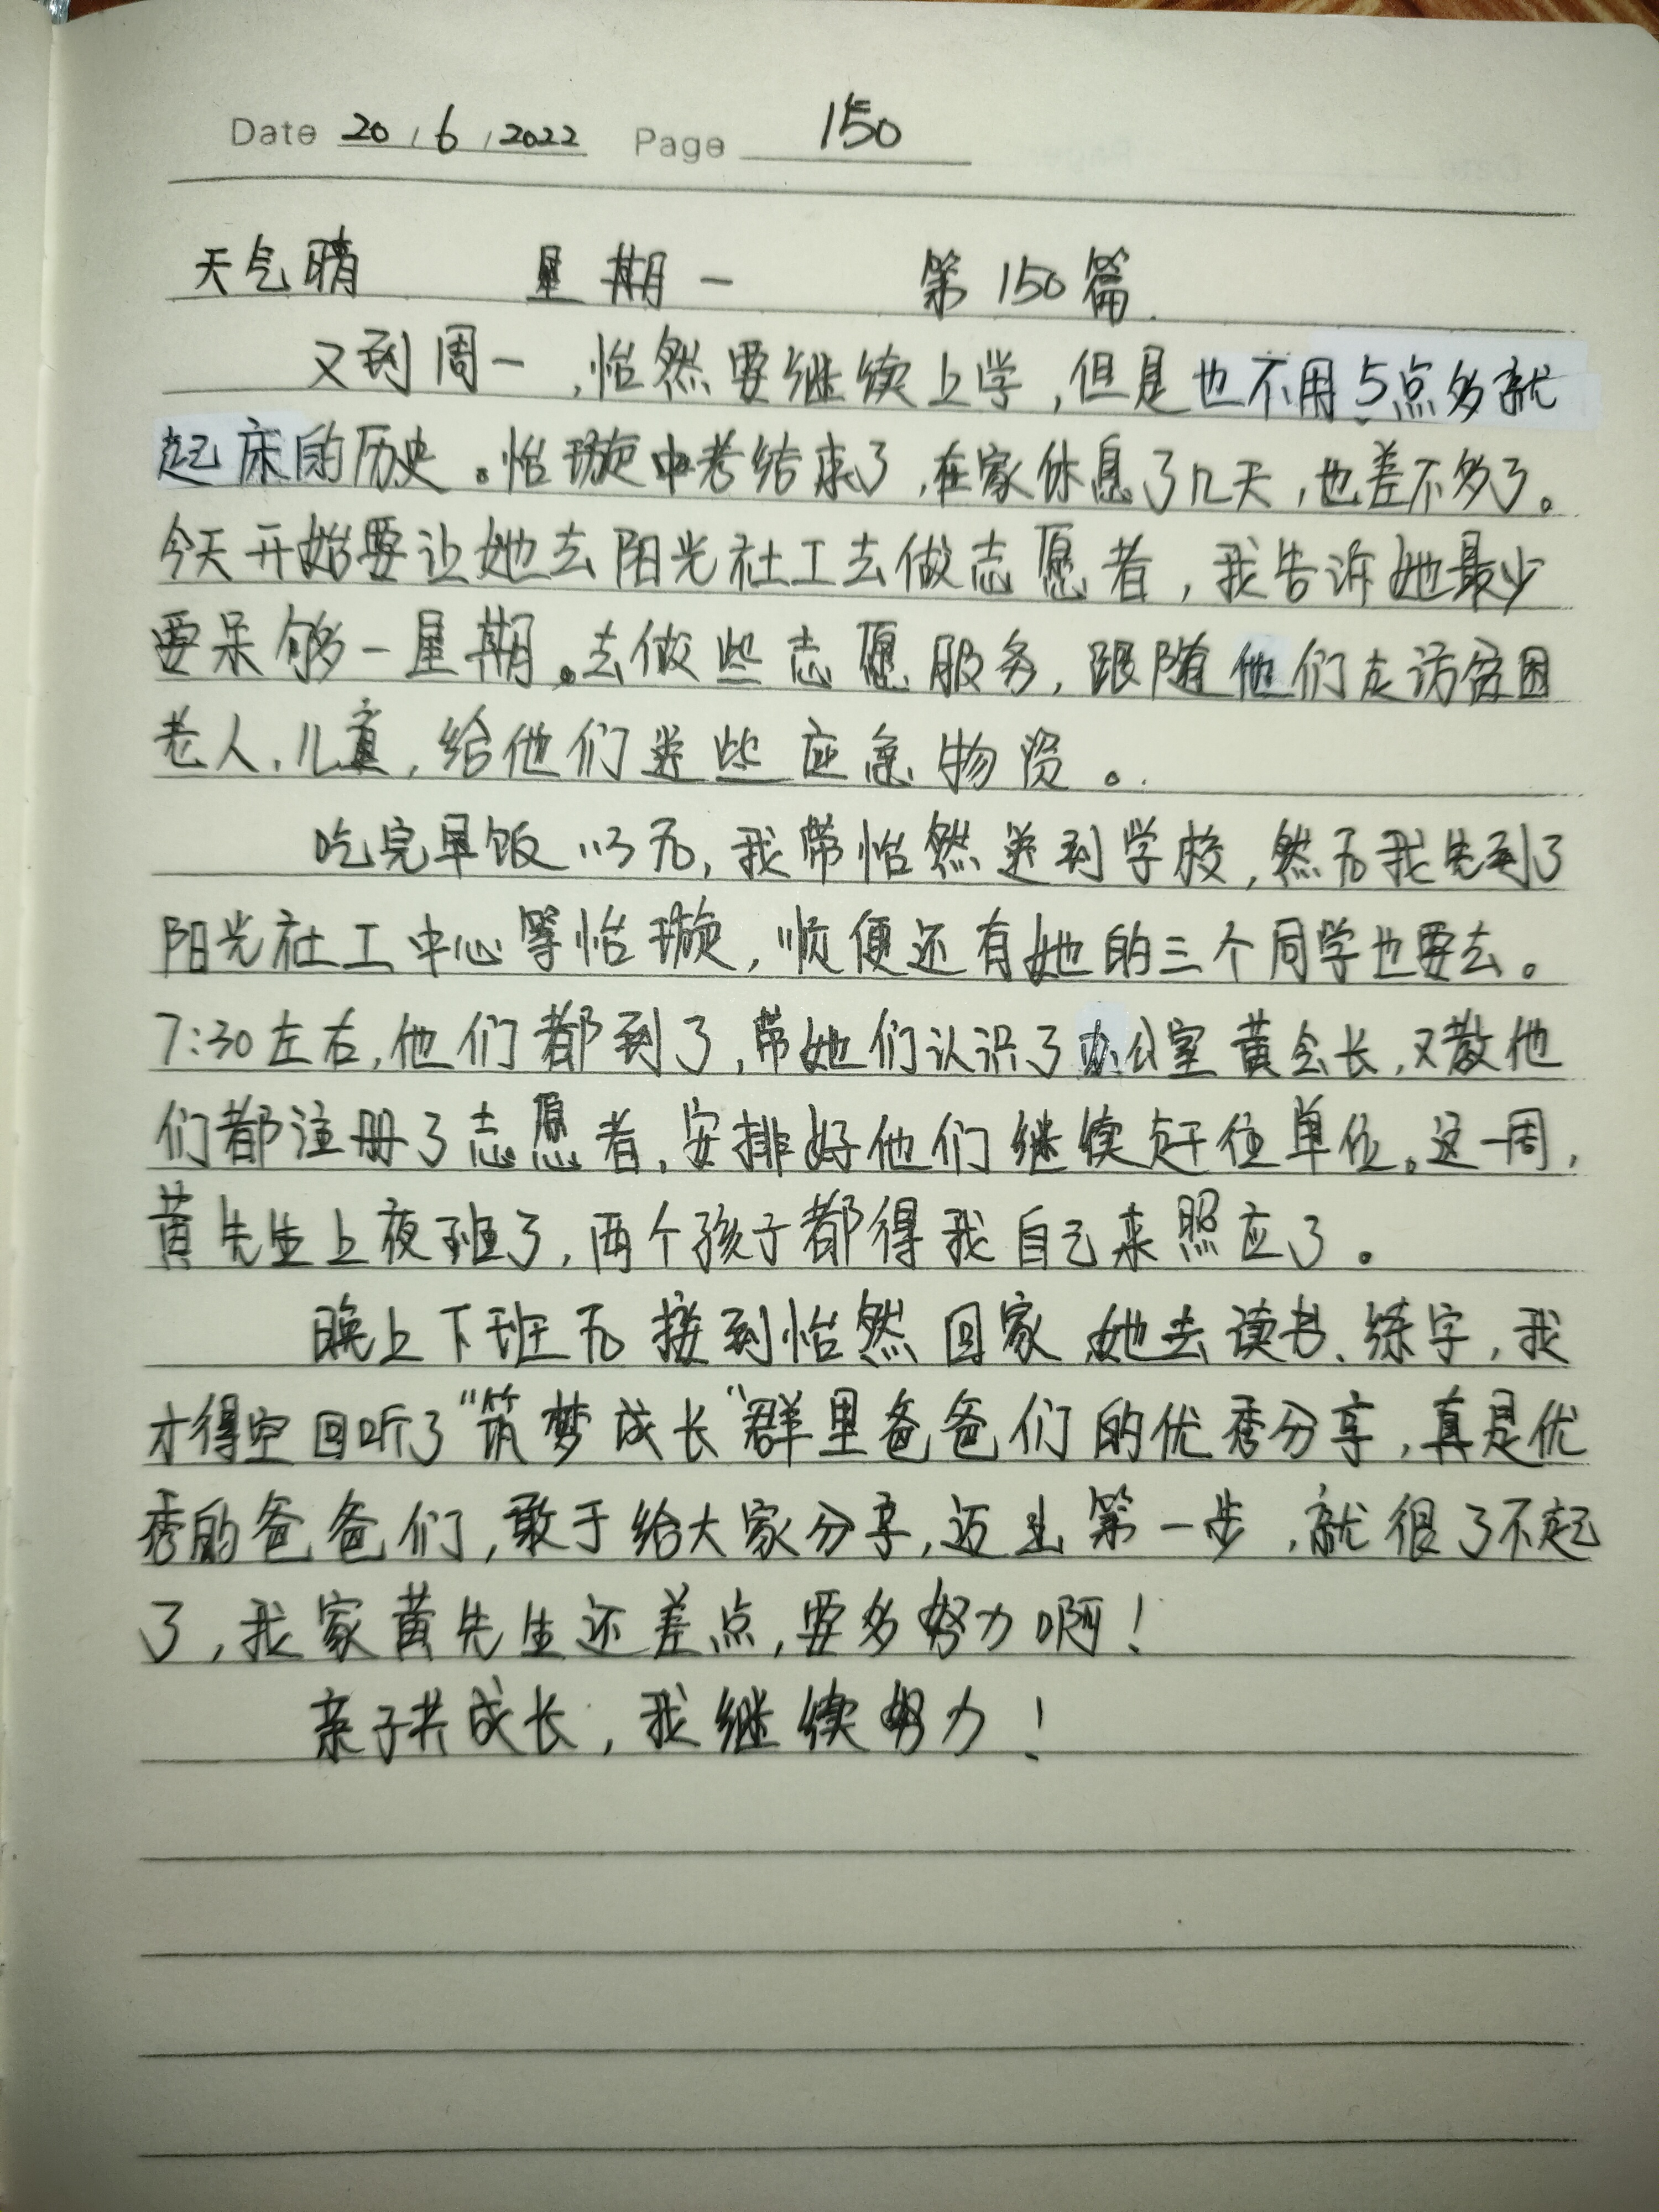 Date 20 / 6 / 2022 Page 150
天气晴 星期一 第150篇
又到周一,怡然要继续上学,但是也不用5点多就
起床的历史。怡璇中考结束了,在家休息了几天,也差不多了。
今天开始要让她去阳光社工去做志愿者,我告诉她最少
要呆够一星期。去做些志愿服务,跟随他们走访贫困
老人、儿童,给他们送些应急物资。
吃完早饭以后,我带怡然送到学校,然后我先到了
阳光社工中心等怡璇,顺便还有她的三个同学也要去。
7:30左右,他们都到了,带她们认识了办公室黄会长,又教他
们都注册了志愿者,安排好他们继续赶往单位。这一周,
黄先生上夜班了,两个孩子都得我自己来照应了。
晚上下班后接到怡然回家,她去读书、练字,我
才得空回听了"筑梦成长"群里爸爸们的优秀分享,真是优
秀的爸爸们,敢于给大家分享,迈出第一步,就很了不起
了,我家黄先生还差点,要多努力啊!
亲子共成长,我继续努力!